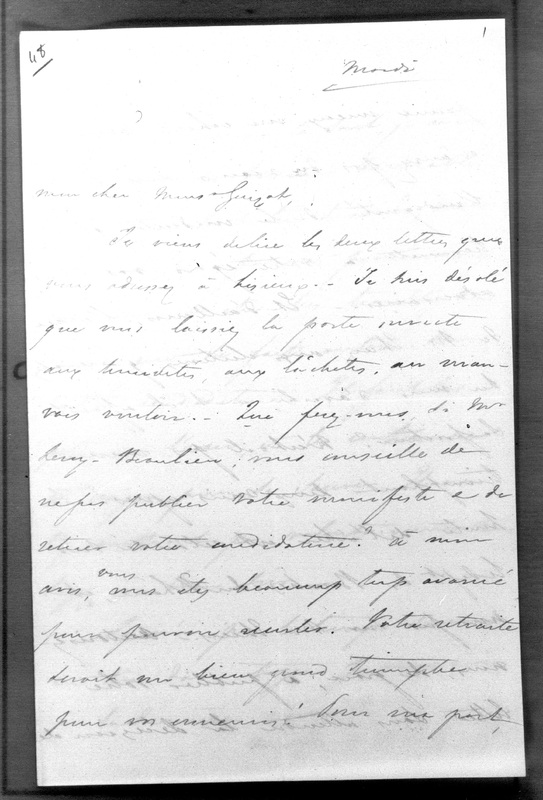 48
1
Mardi
mon cher Monsr Guizot,
Je viens de lire les deux lettres que
vous adressez à Lisieux.. Je suis désolé
que vous laissiez la porte ouverte
aux timidités, aux lâchetés, au mau-
vais vouloir.. Que ferez-vous, si Mr
Leroy-Beaulieu, vous conseille de
ne pas publier votre manifeste & de
retirer votre candidature? à mon
avis, vous vous êtes beaucoup trop avancé
pour pouvoir reculer. Votre retraite
seroit un bien grand triomphe
pour vos ennemis! Pour ma part,